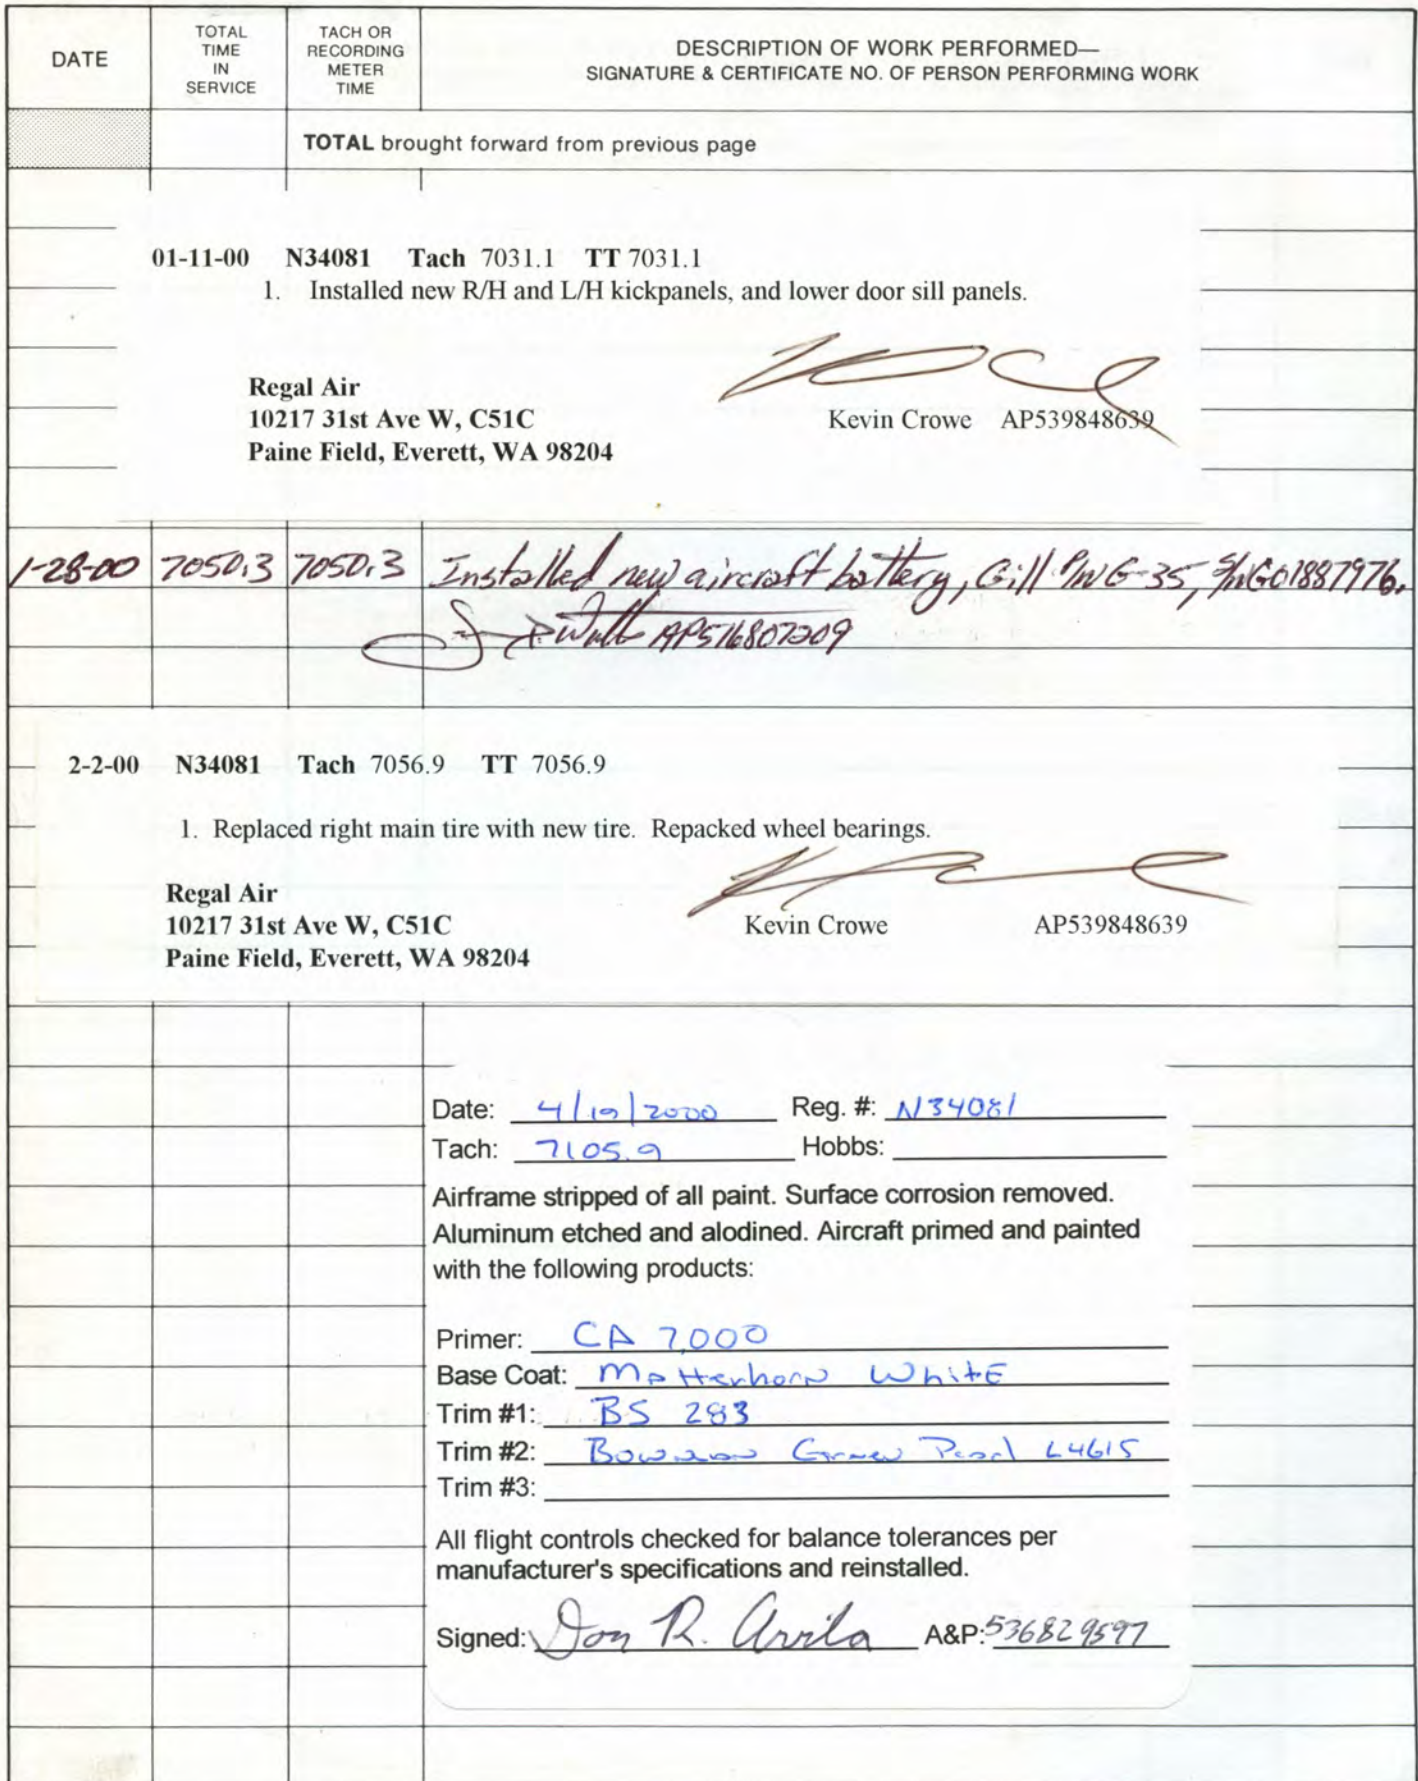 DATE
TOTAL TIME IN SERVICE
TACH OR RECORDING METER TIME
DESCRIPTION OF WORK PERFORMED—
SIGNATURE & CERTIFICATE NO. OF PERSON PERFORMING WORK
TOTAL brought forward from previous page
01-11-00 N34081 Tach 7031.1 TT 7031.1
1. Installed new R/H and L/H kickpanels, and lower door sill panels.
Regal Air
10217 31st Ave W, C51C Kevin Crowe AP539848639
Paine Field, Everett, WA 98204
1-28-00 7050.3 7050.3 Installed new aircraft battery, Gill P/N G-35, S/N G01887976.
AP516807209
2-2-00 N34081 Tach 7056.9 TT 7056.9
1. Replaced right main tire with new tire. Repacked wheel bearings.
Regal Air
10217 31st Ave W, C51C Kevin Crowe AP539848639
Paine Field, Everett, WA 98204
Date: 4/19/2000 Reg. #: N34081
Tach: 7105.9 Hobbs:
Airframe stripped of all paint. Surface corrosion removed.
Aluminum etched and alodined. Aircraft primed and painted
with the following products:
Primer: CA 7000
Base Coat: Matterhorn White
Trim #1: BS 283
Trim #2: Pearl L4615
Trim #3:
All flight controls checked for balance tolerances per
manufacturer's specifications and reinstalled.
Signed: Don R. Avila A&P: 536829597